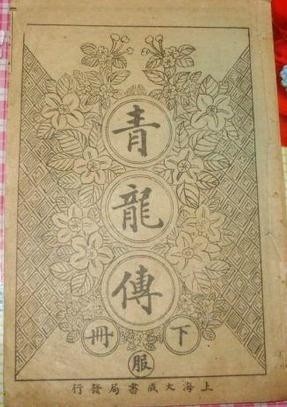 青龍傳
下冊
服
上海大成書局發行